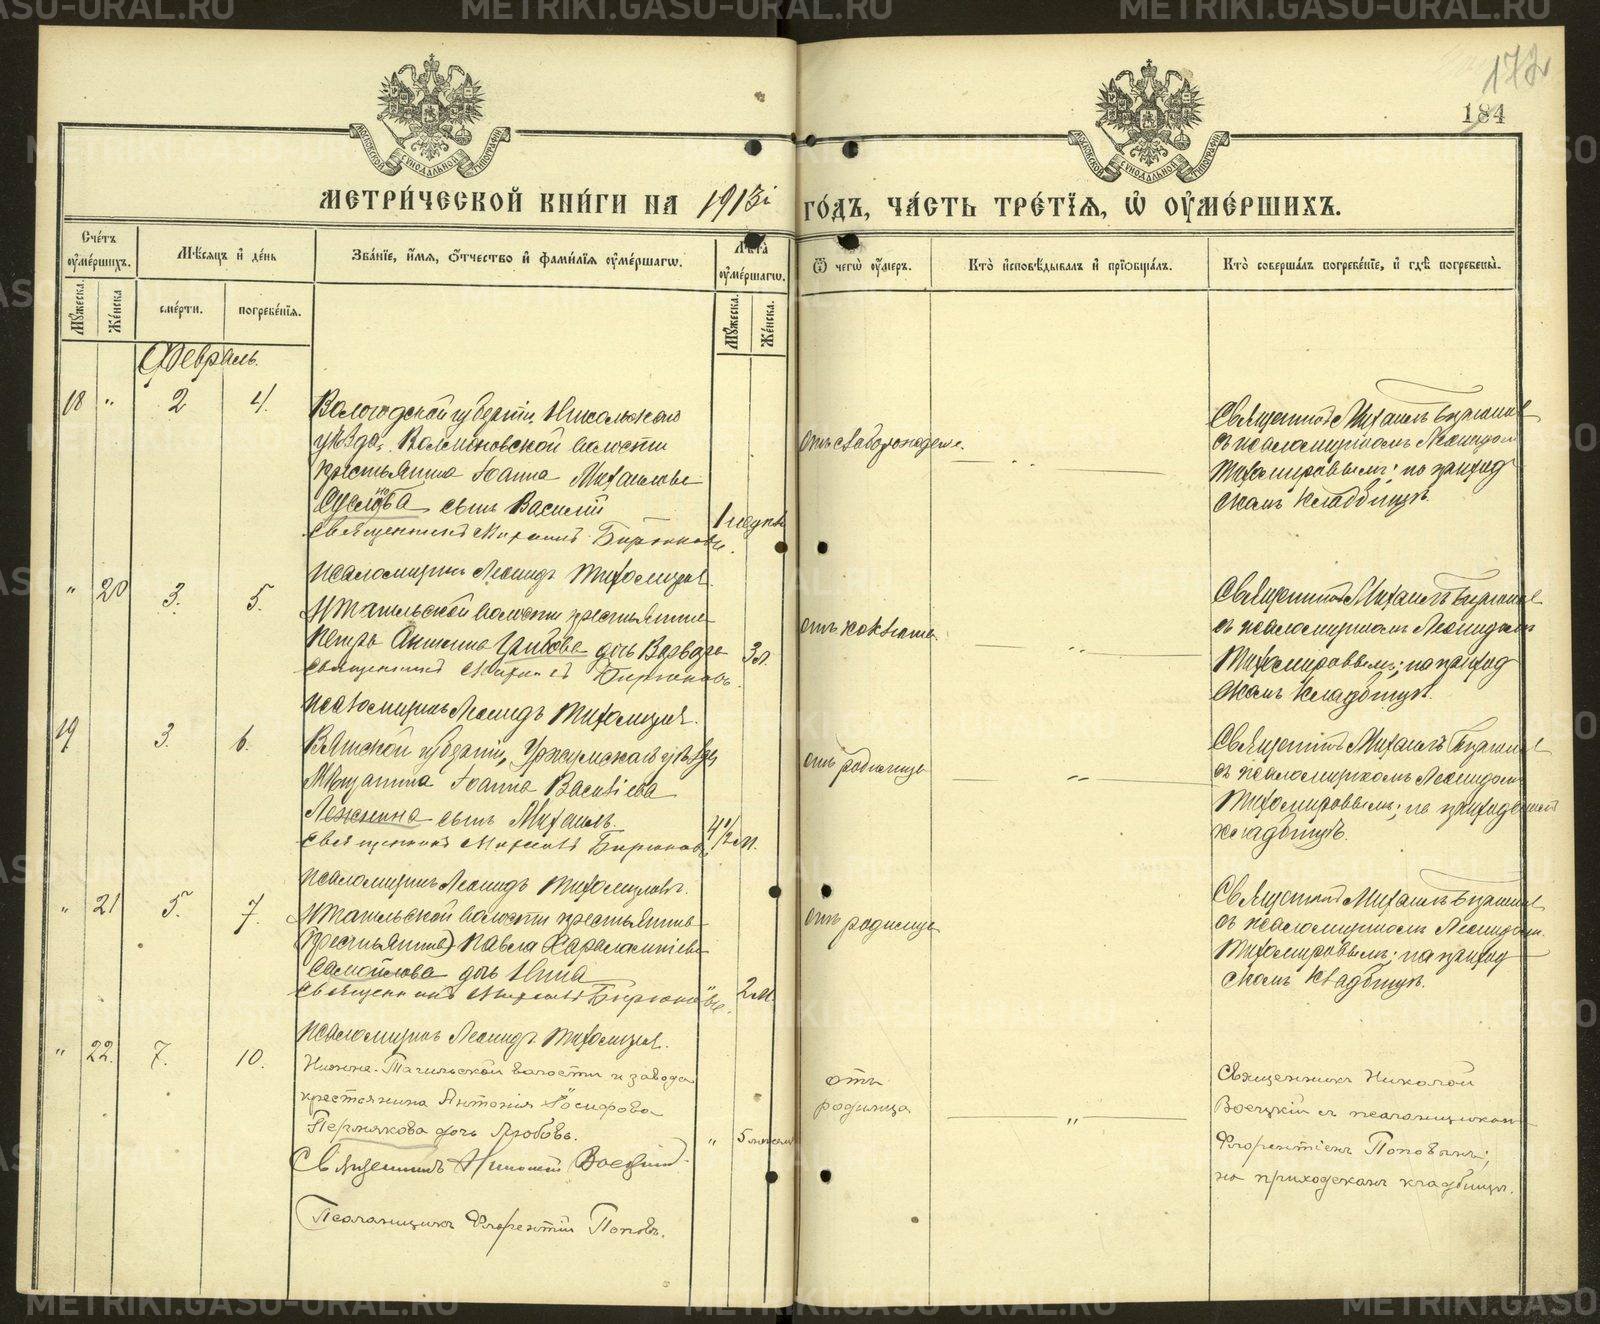 172
184
МОСКОВСКОЙ СѴНОДАЛЬНОЙ ТИПОГРАФІИ
МОСКОВСКОЙ СѴНОДАЛЬНОЙ ТИПОГРАФІИ
МЕТРИ́ЧЕСКОЙ КНИ́ГИ НА 1913й ГО́ДЪ, ЧА́СТЬ ТРЕ́ТІѦ, Ѡ ОУМЕ́РШИХЪ.
Сче́тъ оумершихъ.
Мѣсяцъ и день
Званіе, имя, отчество и фамилія оумершагѡ.
Лѣта оумершагѡ.
Ѿ чегѡ оумеръ.
Кто исповѣдывалъ и пріобщалъ.
Кто совершалъ погребеніе, и гдѣ погребены.
Мужеска.
Женска
смерти.
погребенія.
Мужеска.
Женска.
Февраль.
18 " 2 4.
Вологодской губерніи, Никольскаго
уѣзда, волости
крестьянина Іоанна Михаилова
сынъ Василій
1 недѣл
Священникъ Михаилъ Бирюковъ.
Псаломщикъ Леонидъ Тихомировъ.
отъ слаборожден.
"
Священникъ Михаилъ Бирюков
съ псаломщикомъ Леонидом
Тихомировымъ; на приход
скомъ кладбищѣ
" 20 3. 5.
Н Тагильской волости крестьянина
Петра дочь Варвара
3 л.
Священникъ Михаилъ Бирюковъ.
Псаломщикъ Леонидъ Тихомировъ.
отъ коклюша
"
Священникъ Михаилъ Бирюков
съ псаломщикомъ Леонидомъ
Тихомировымъ; на приход
скомъ кладбищѣ.
19 3. 6.
Вятской губерніи, Уржумскаго уѣзда
Мѣщанина Іоанна Васильева
Лежнина сынъ Михаилъ.
4 1/2 м.
Священникъ Михаилъ Бирюковъ
Псаломщикъ Леонидъ Тихомировъ.
отъ родимца
"
Священникъ Михаилъ Бирюков
съ псаломщикомъ Леонидом
Тихомировымъ; на приходской
кладбищѣ.
" 21 5. 7.
Н Тагильской волости крестьянина
(крестьянина) Павла Харалампіева
Самойлова дочь Нина
" 2 м.
Священникъ Михаилъ Бирюковъ.
Псаломщикъ Леонидъ Тихомировъ.
отъ родимца
Священникъ Михаилъ Бирюков
съ псаломщикомъ Леонидом
Тихомировымъ; на приход
скомъ кладбищѣ.
" 22. 7. 10.
Нижне-Тагильской волости и завода
крестьянина Антонія Іосифова
Пермякова дочь Любовь.
" 5
Священникъ Николай
Псаломщикъ Флорентій Поповъ.
отъ
родимца
"
Священникъ Николай
съ псаломщиком
Флорентіемъ Поповымъ;
на приходскомъ кладбищѣ.
METRIKI.GASU-URAL.RU